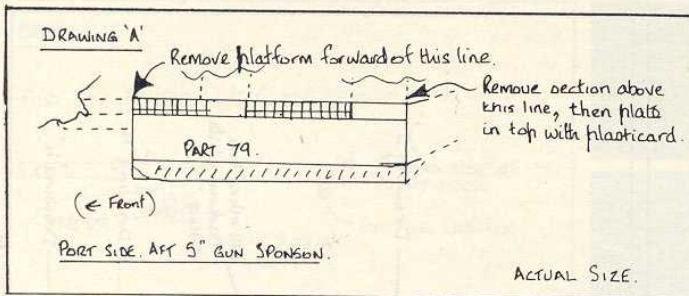 DRAWING 'A'
Remove platform forward of this line.
Remove section above
this line, then plate
in top with plasticard.
PART 79.
(← FRONT)
PORT SIDE. AFT 5" GUN SPONSON.
ACTUAL SIZE.